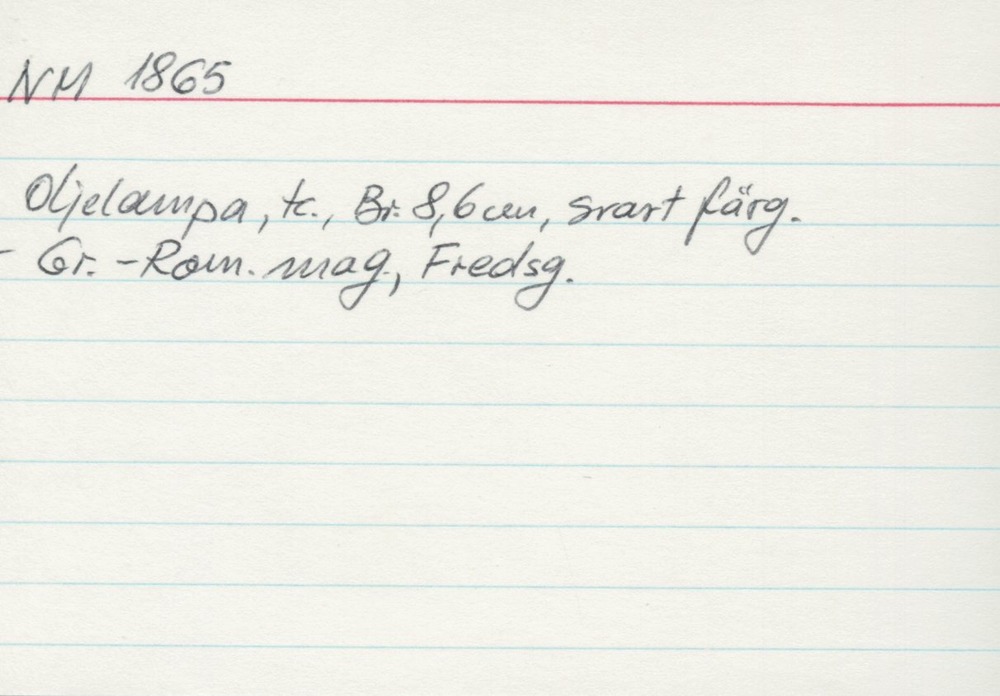 NM 1865
Oljelampa, tc., Br. 8,6 cm, svart färg.
- Gr. -Rom. mag., Fredsg.